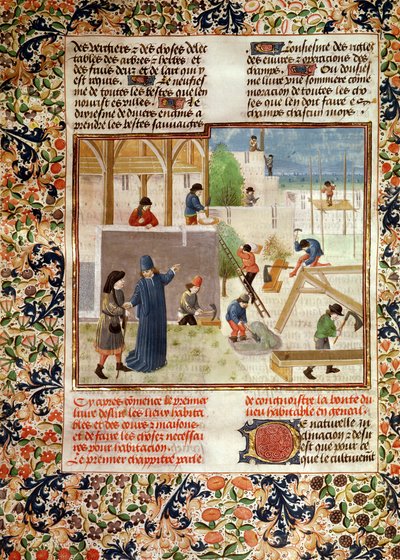 des vergiers & des choses delec
tables des arbres & herbes et
des fruis deux et de lart qui y
est requis. Le neufieſ
me de toutes les bestes que len
nourist es villes. Le
dixiesme de divers engins a
prendre les bestes sauvages
Lonsiesme des rigles
des cultures & operacions des
champs. Ou dousies
me livre une sommiere com
moracion de toutes les cho
ses que len doit faire es
champs chascun moys.
Cy apres cõmence le premier
livre des sur les lieux habita
bles et des cours & maisons
et de faire les choses necessai
res pour habitacion.
Le premier chappitre parle
de congnoistre la bonte du
lieu habitable en general.
De naturelle in
clinacion & desir
est que pour ce
que le cultivement